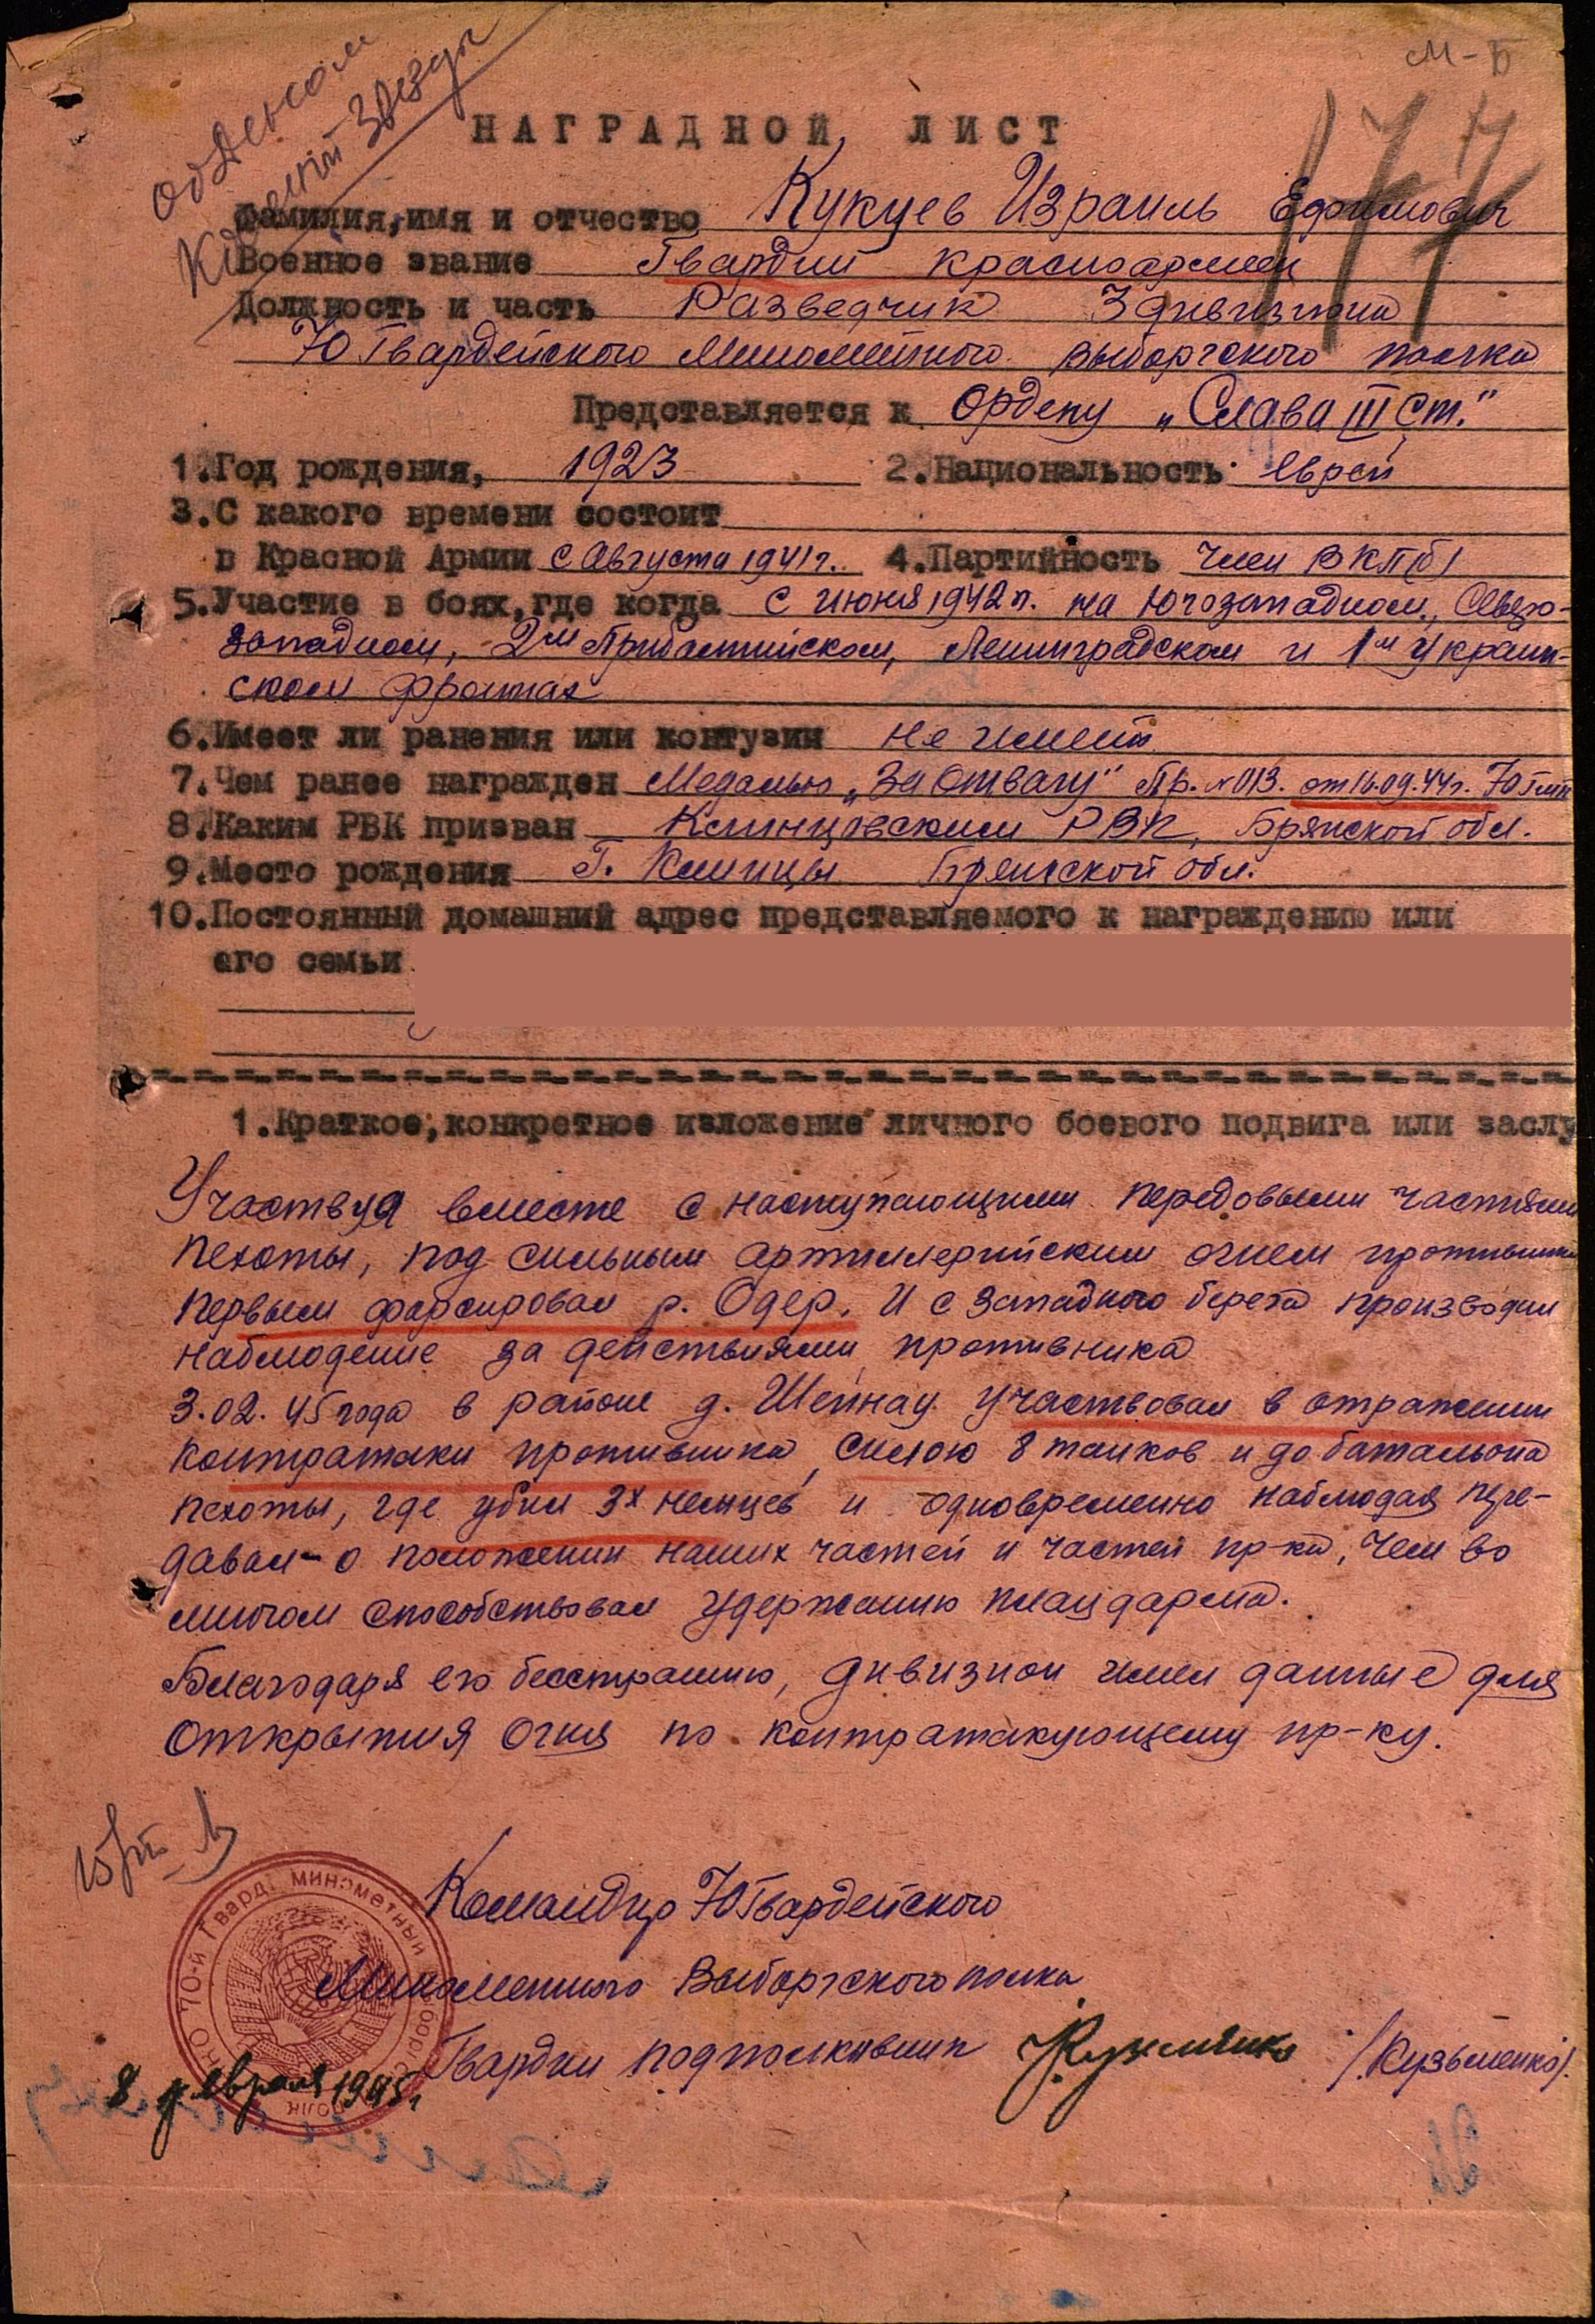 М-Б
Орденом
Красной Звезды
177
НАГРАДНОЙ ЛИСТ
Фамилия, имя и отчество Кукуев Израиль Ефимович
Военное звание Гвардии красноармеец
Должность и часть Разведчик 3 дивизиона
70 Гвардейского Миномётного Выборгского полка
Представляется к Ордену „Слава III ст."
1. Год рождения, 1923 2. Национальность еврей
3. С какого времени состоит
в Красной Армии с Августа 1941 г. 4. Партийность Член ВКП(б)
5. Участие в боях, где когда с июня 1942 г. на Югозападном, Северо-
западном, 2м Прибалтийском, Ленинградском и 1м Украин-
ском фронтах
6. Имеет ли ранения или контузии не имеет
7. Чем ранее награжден Медалью „За Отвагу" Пр. № 013. от 16.09.44 г. 70 Гмп
8. Каким РВК призван Клинцовским РВК, Брянской обл.
9. Место рождения Г. Клинцы Брянской обл.
10. Постоянный домашний адрес представляемого к награждению или
его семьи
1. Краткое, конкретное изложение личного боевого подвига или заслу
Участвуя вместе с наступающими передовыми частями
пехоты, под сильным артиллерийским огнем противника
первым форсировал р. Одер. И с западного берега производил
наблюдение за действиями противника
3.02.45 года в районе д. Шейнау участвовал в отражении
контратаки противника, силою 8 танков и до батальона
пехоты, где убил 3х немцев и одновременно наблюдая пере-
давал о положении наших частей и частей пр-ка, чем во
многом способствовал удержанию плацдарма.
Благодаря его бесстрашию, дивизион имел данные для
открытия огня по контратакующему пр-ку.
Командир 70 Гвардейского
Минометного Выборгского полка
Гвардии подполковник Кузьменко /Кузьменко/.
8 февраля 1945 г
НКО 70-й Гвард. минометный Выборгский полк